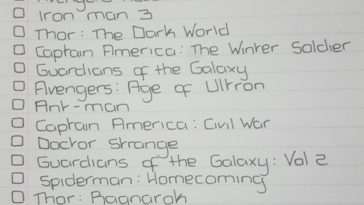 Iron man 3
Thor: The Dark World
Captain America: The Winter Soldier
Guardians of the Galaxy
Avengers: Age of Ultron
Ant-man
Captain America: Civil War
Doctor Strange
Guardians of the Galaxy: Vol 2
Spiderman: Homecoming
Thor: Ragnarok